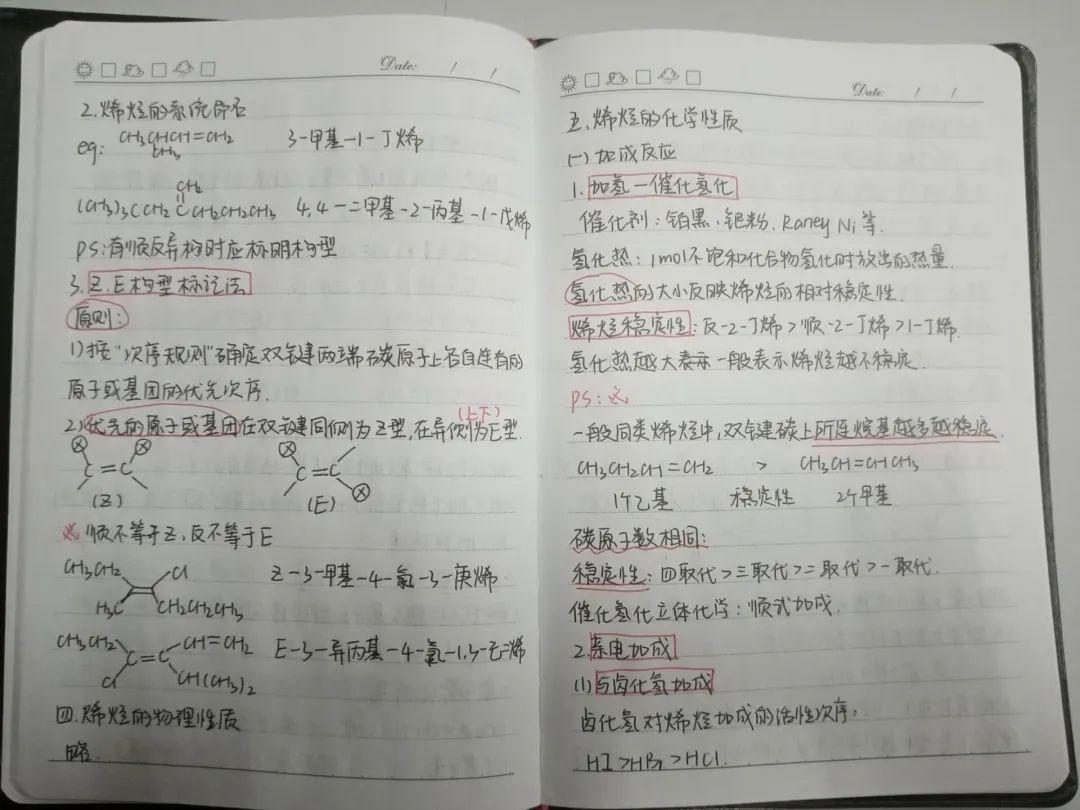 Date: / /
2.烯烃的系统命名
eg: CH₃CHCH=CH₂ 3-甲基-1-丁烯
CH₃
CH₂
(CH₃)₃CCH₂CCH₂CH₂CH₃ 4,4-二甲基-2-丙基-1-戊烯
PS:有顺反异构时应标明构型
3.Z.E构型标记法
原则:
1)按"次序规则"确定双键两端碳原子上各自连有的
原子或基团的优先次序.
(上下)
2)优先的原子或基团在双键同侧为Z型,在异侧为E型.
C=C C=C
(Z) (E)
顺不等于Z,反不等于E
CH₃CH₂ Cl Z-3-甲基-4-氯-3-庚烯
H₃C CH₂CH₂CH₃
CH₃CH₂ CH=CH₂ E-3-异丙基-4-氯-1,3-己二烯
C=C
Cl CH(CH₃)₂
四.烯烃的物理性质
略.
Date: / /
五.烯烃的化学性质
(一)加成反应
1.加氢—催化氢化
催化剂:铂黑、钯粉、Raney Ni等.
氢化热:1mol不饱和化合物氢化时放出的热量.
氢化热的大小反映烯烃的相对稳定性.
烯烃稳定性:反-2-丁烯>顺-2-丁烯>1-丁烯.
氢化热越大表示一般表示烯烃越不稳定.
PS:
一般同类烯烃中,双键碳上所连烷基越多越稳定.
CH₃CH₂CH=CH₂ > CH₃CH=CHCH₃
1个乙基 稳定性 2个甲基
碳原子数相同:
稳定性:四取代>三取代>二取代>一取代.
催化氢化立体化学:顺式加成.
2.亲电加成
(1)与卤化氢加成
卤化氢对烯烃加成的活性次序:
HI>HBr>HCl.